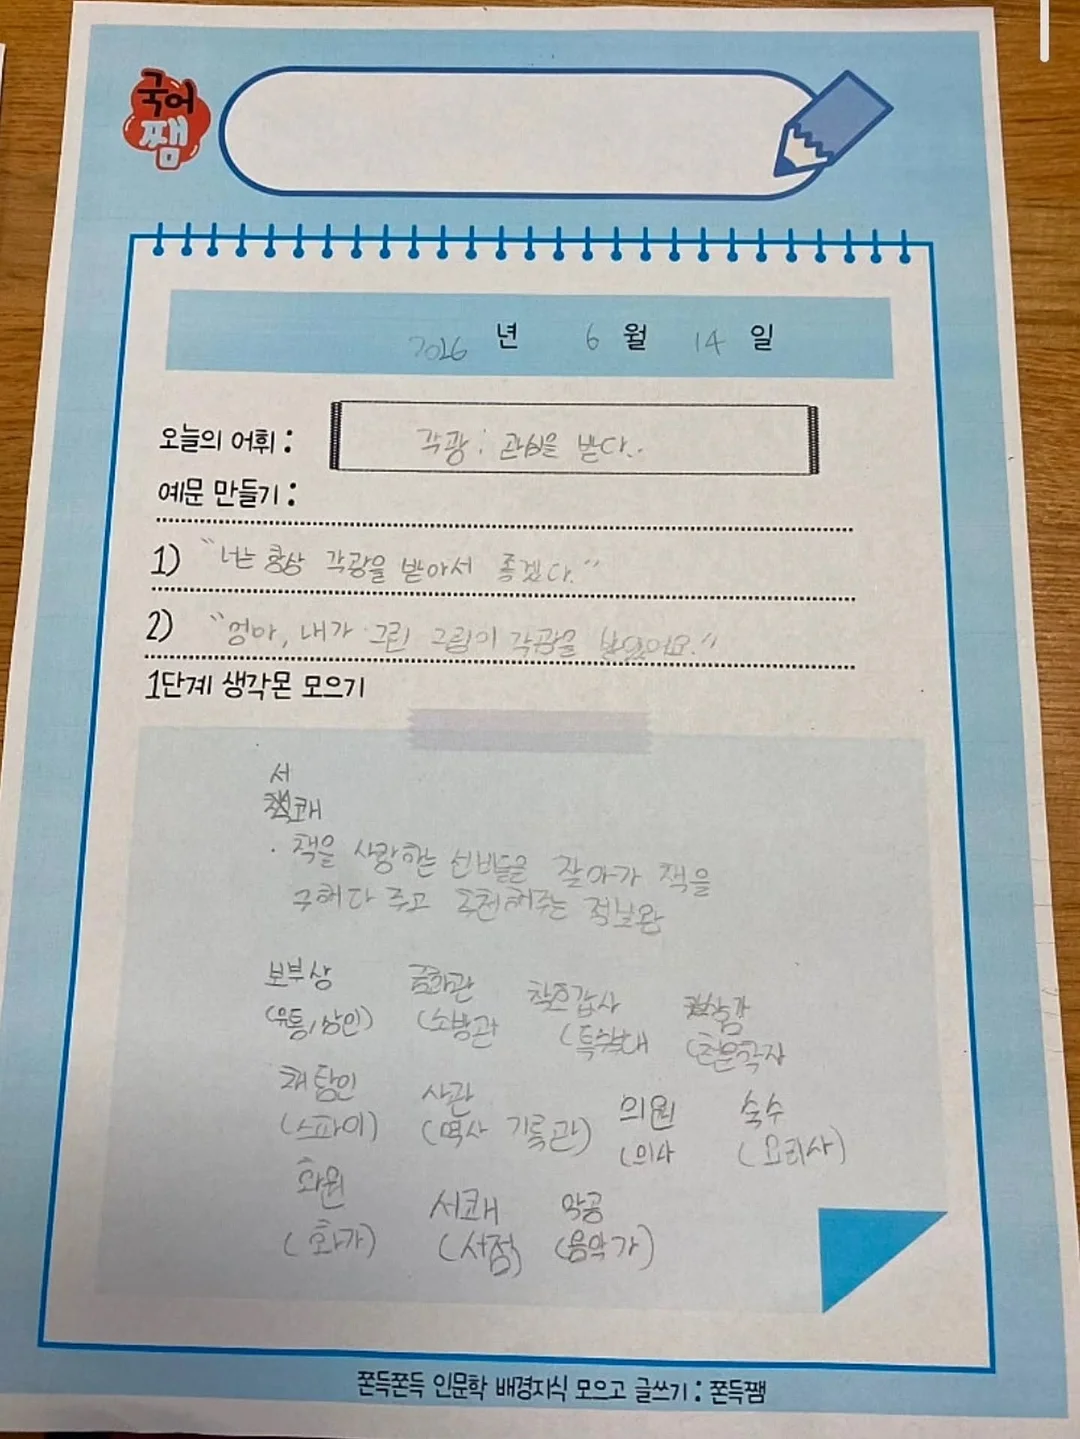 국어
쨈
2026 년 6 월 14 일
오늘의 어휘 : 각광 : 관심을 받다..
예문 만들기 :
1) "너는 항상 각광을 받아서 좋겠다."
2) "엄마, 내가 그린 그림이 각광을 받았어요."
1단계 생각몬 모으기
서
쾌
· 책을 사랑하는 선비들을 찾아가 책을
구해다 주고 추천해주는 정보왕
보부상 금화관 착호갑사 상감
(유통, 상인) (소방관 (특수부대 (천문학자
채탐인 사관 의원 숙수
(스파이) (역사 기록관) (의사 (요리사)
화원 서쾌 악공
(화가) (서점) (음악가)
쫀득쫀득 인문학 배경지식 모으고 글쓰기 : 쫀득쨈